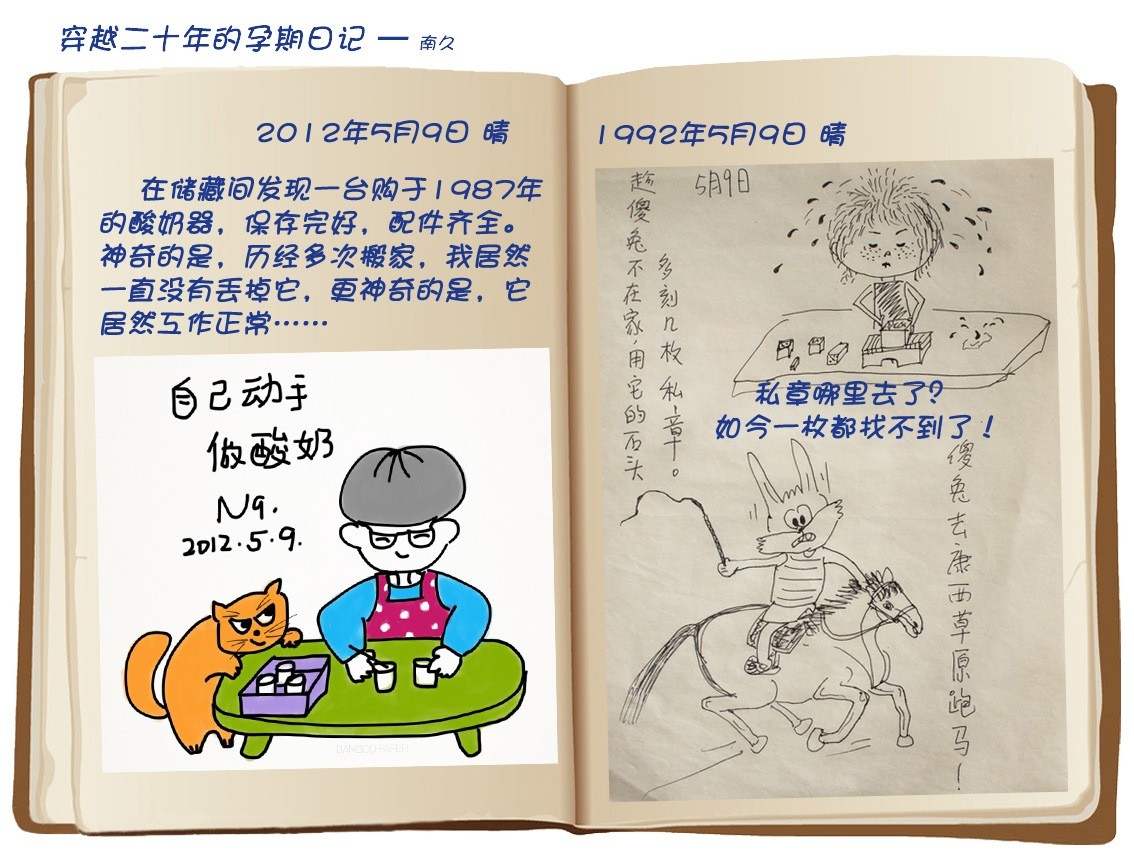 穿越二十年的孕期日记 — 南久
2012年5月9日 晴
在储藏间发现一台购于1987年
的酸奶器，保存完好，配件齐全。
神奇的是，历经多次搬家，我居然
一直没有丢掉它，更神奇的是，它
居然工作正常……
自己动手
做酸奶
N9.
2012.5.9.
1992年5月9日 晴
5月9日
趁傻兔不在家，用它的石头
多刻几枚私章。
私章哪里去了？
如今一枚都找不到了！
傻兔去康西草原跑马！